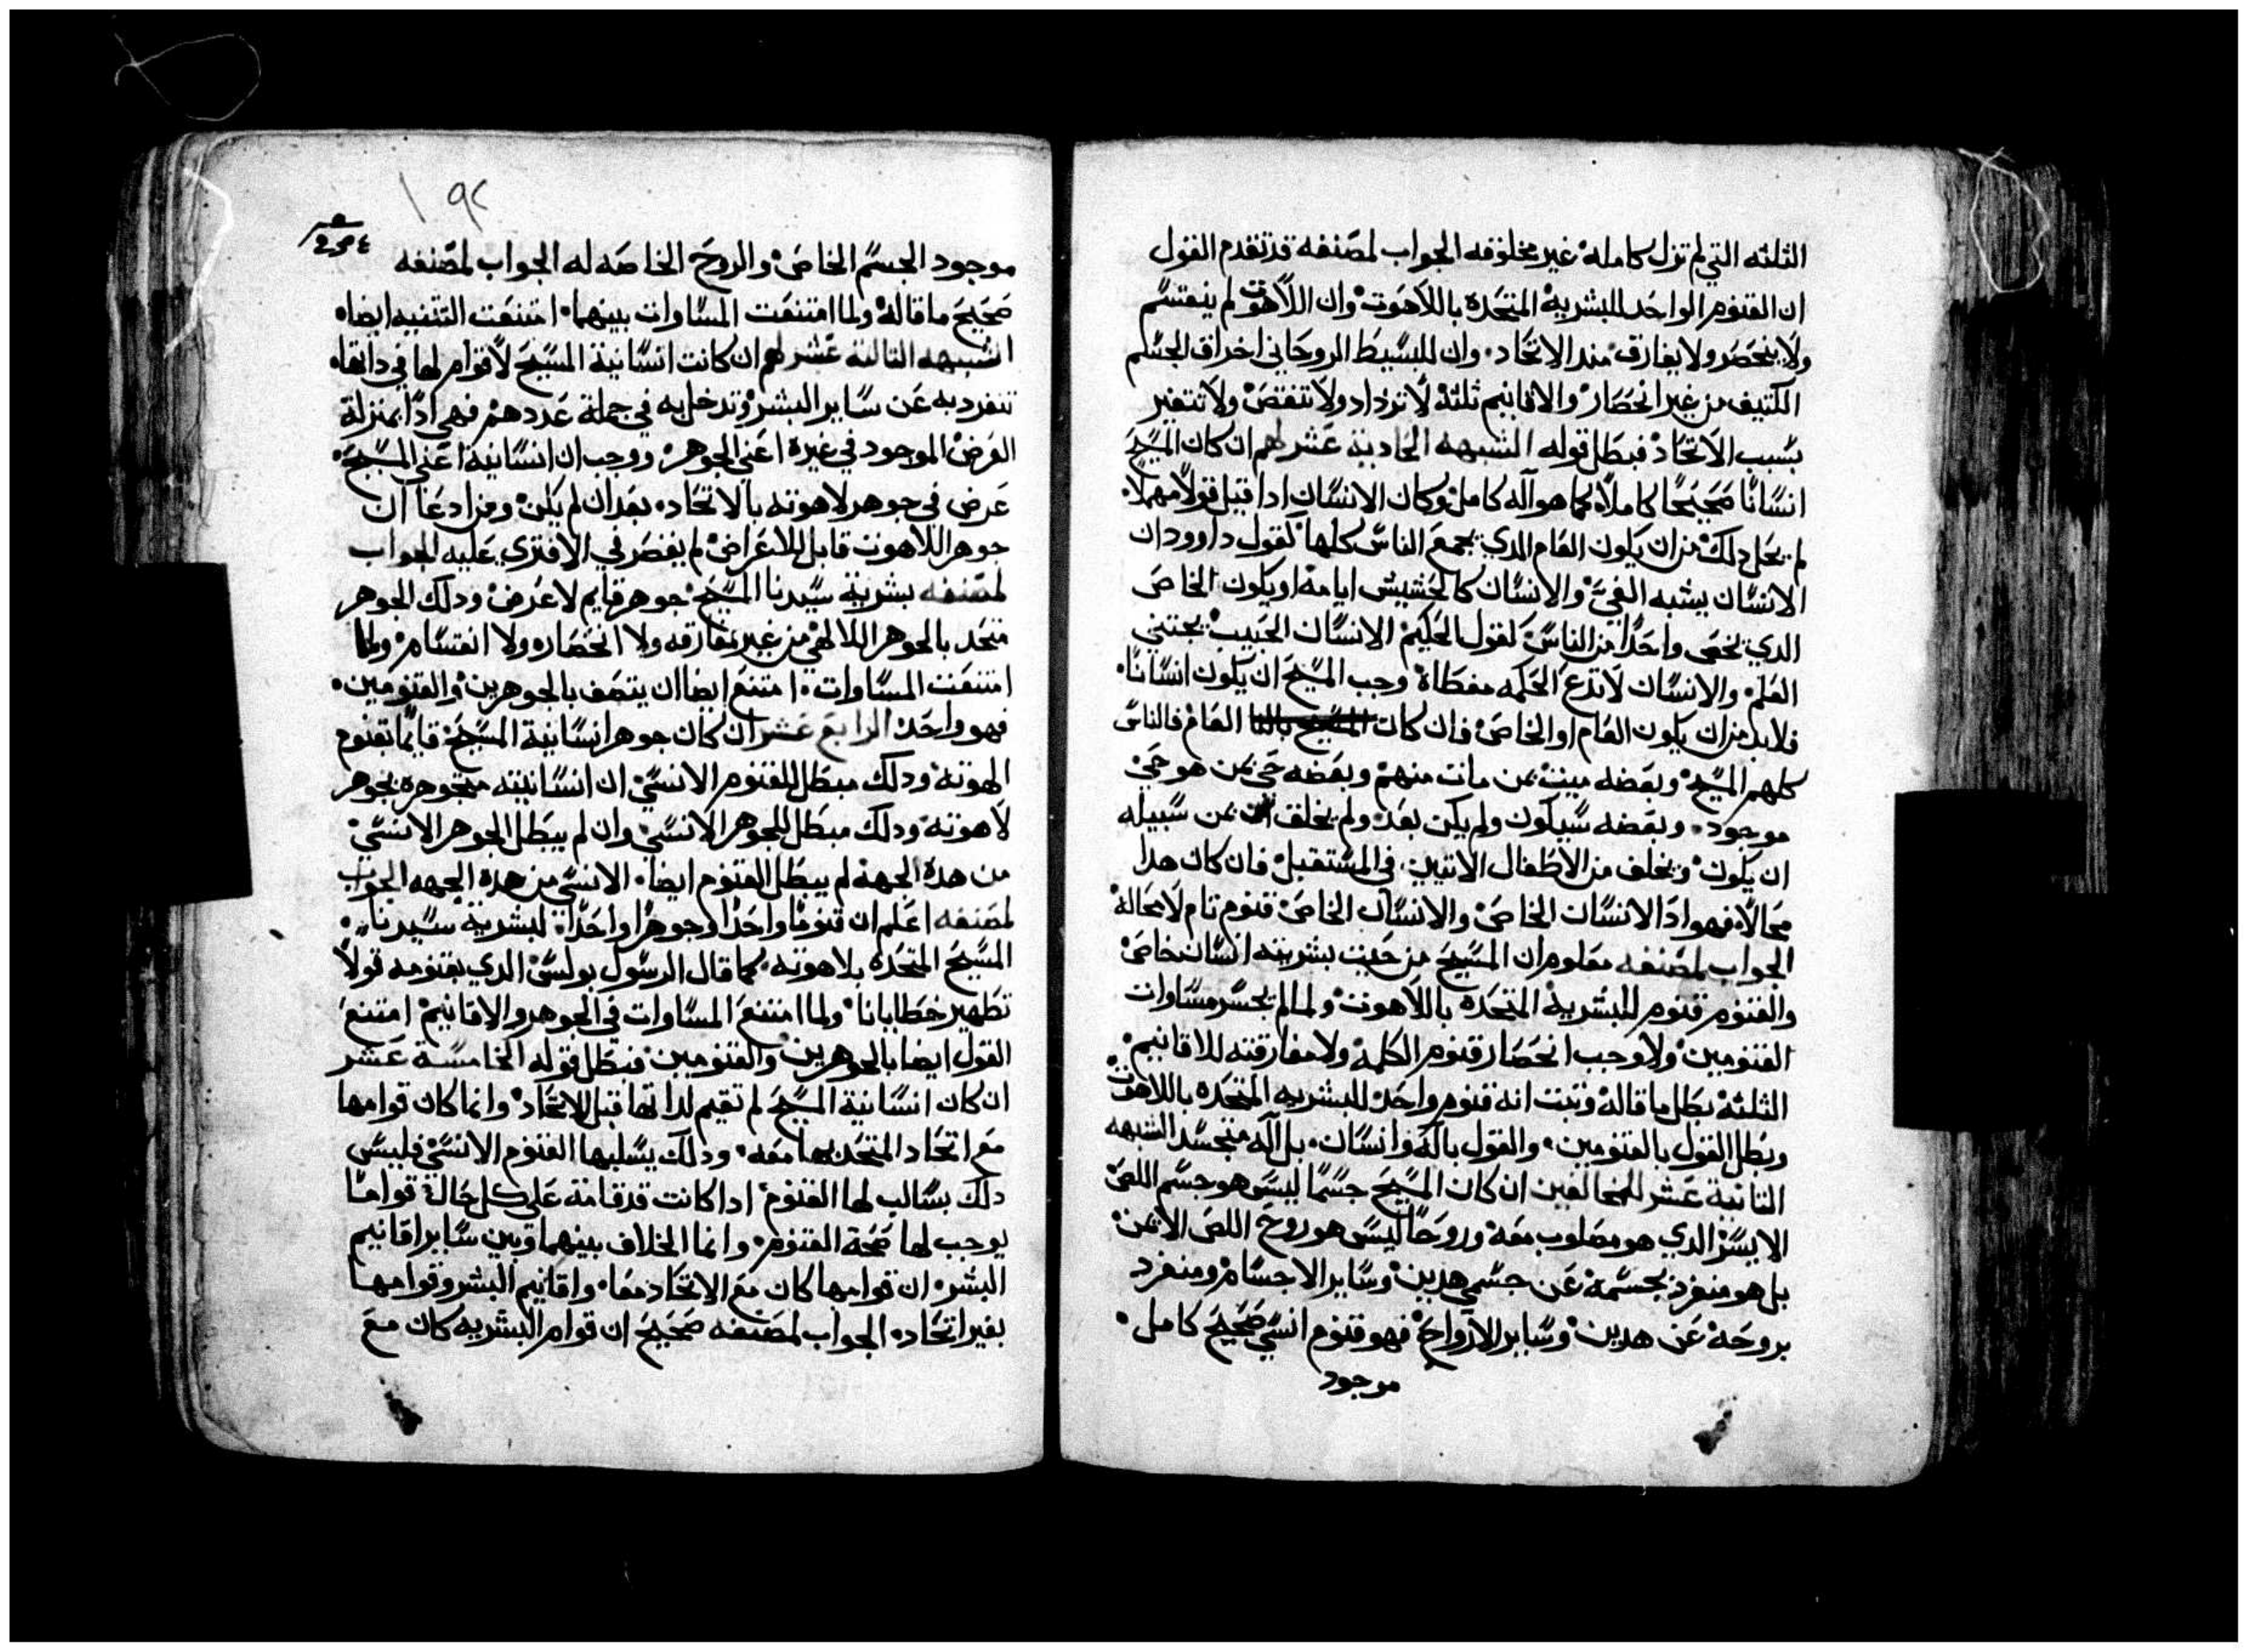 الثلثه التي لم تزل كامله غير مخلوقه الجواب لمصنفه قد تقدم القول
ان القنوم الواحد للبشريه المتحده باللاهوت وان اللاهوت لم ينقسم
ولا ينحصر ولا يفارق مند الاتحاد وان للبسيط الروحاني اخراق الجسم
الكتيف من غير انحصار والاقانيم ثلثه لا تزداد ولا تنقص ولا تتغير
بسبب الاتحاد فبطل قوله الشبهه الحاديه عشر لهم ان كان المسيح
انسانا صحيحا كاملا كما هو آله كامل وكان الانسان ادا قيل قولا مهملا
لم يخل دلك من ان يكون العام الدي يجمع الناس كلها كقول داوود ان
الانسان يشبه الفي والانسان كالحشيش ايامه او يكون الخاص
الدي يخص واحدا من الناس كقول الحكيم الانسان الحبيب يجتني
العلم والانسان لا تدع الحكمه مغطاة وجب المسيح ان يكون انسانا
فلا بد من ان يكون العام او الخاص فان كان المسيح بالنا العام فالناس
كلهم المسيح وبعضه ميت بمن مات منهم وبعضه حي بمن هو حي
موجود وبعضه سيكون ولم يكن بعد ولم يخلق بمن سبيله
ان يكون ويخلف من الاطفال الاتيين في المستقبل فان كان هدا
محالا فهو ادا الانسان الخاص والانسان الخاص قنوم تام لا محاله
الجواب لمصنفه معلوم ان المسيح من حيت بشريته انسان خاص
والقنوم قنوم للبشريه المتحده باللاهوت ولما لم يحسر مساوات
القنومين ولا وجب انحصار قنوم الكلمه ولا مفارقته للاقانيم
الثلثه بطل ما قاله وتبت انه قنوم واحد للبشريه المتحده باللاهوت
وبطل القول بالقنومين والقول باله وانسان بل اله متجسد الشبهه
التانية عشر للمخالفين ان كان المسيح جسما ليس هو جسم اللص
الايسر الدي هو مصلوب معه وروحا ليس هو روح اللص الايمن
بل هو منفرد بجسمه عن جسمي هدين وساير الاجسام ومنفرد
بروحه عن هدين وساير الارواح فهو قنوم انسي صحيح كامل
موجود
١٩٢
موجود الجسم الخاص والروح الخاصه له الجواب لمصنفه
صحيح ما قاله ولما امتنعت المساوات بينهما امتنعت التتنيه ايضا
الشبهه التالته عشر لهم ان كانت انسانية المسيح لا قوام لها في داتها
تنفرد به عن ساير البشر وتدخل به في جملة عددهم فهي ادا بمنزلة
العرض الموجود في غيره اعني الجوهر ووجب ان انسانية اعني المسيح
عرض في جوهر لاهوته بالاتحاد بعد ان لم يكن ومن ادعا ان
جوهر اللاهوت قابل للاعراض لم يقصر في الافتري عليه الجواب
لمصنفه بشرية سيدنا المسيح جوهر قايم لا عرض ودلك الجوهر
متحد بالجوهر الالاهي من غير مفارقه ولا انحصاره ولا انقسام ولما
امتنعت المساوات امتنع ايضا ان يتصف بالجوهرين والقنومين
فهو واحد الرابع عشر ان كان جوهر انسانية المسيح قايما بقنوم
الهوته ودلك مبطل للقنوم الانسي ان انسانيته متجوهره بجوهر
لاهوته ودلك مبطل للجوهر الانسي وان لم يبطل الجوهر الانسي
من هده الجهة لم يبطل القنوم ايضا الانسي من هده الجهه الجواب
لمصنفه اعلم ان قنوما واحدا وجوهرا واحدا لبشرية سيدنا
المسيح المتحده بلاهوته كما قال الرسول بولس الدي بقنومه تولا
تطهير خطايانا ولما امتنع المساوات في الجوهر والاقانيم امتنع
القول ايضا بالجوهرين والقنومين فبطل قوله الخامسة عشر
ان كان انسانية المسيح لم تقيم لداتها قبل الاتحاد وانما كان قوامها
مع اتحاد المتحد بها معه ودلك يسلبها القنوم الانسي فليس
دلك بسالب لها القنوم ادا كانت قد قامت على كل حال قواما
يوجب لها صحة القنوم وانما الخلاف بينهما وبين ساير اقانيم
البشر ان قوامها كان مع الاتحاد معا واقانيم البشر وقوامها
بغير اتحاد الجواب لمصنفه صحيح ان قوام البشريه كان مع